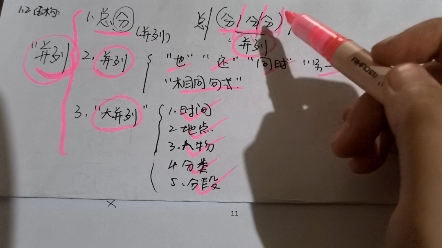 1. 总分 总/分/分分/
(并列) 并列
"并列"
2. 并列 "也" "还" "同时"
"相同句式"
3. "大并列" 1. 时间
2. 地点
3. 人物
4. 分类
5. 分段
11